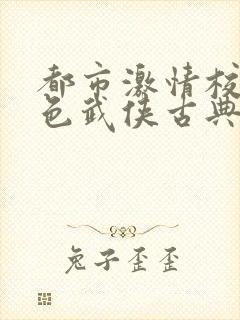 都市激情校
色武侠古典
兔子歪歪